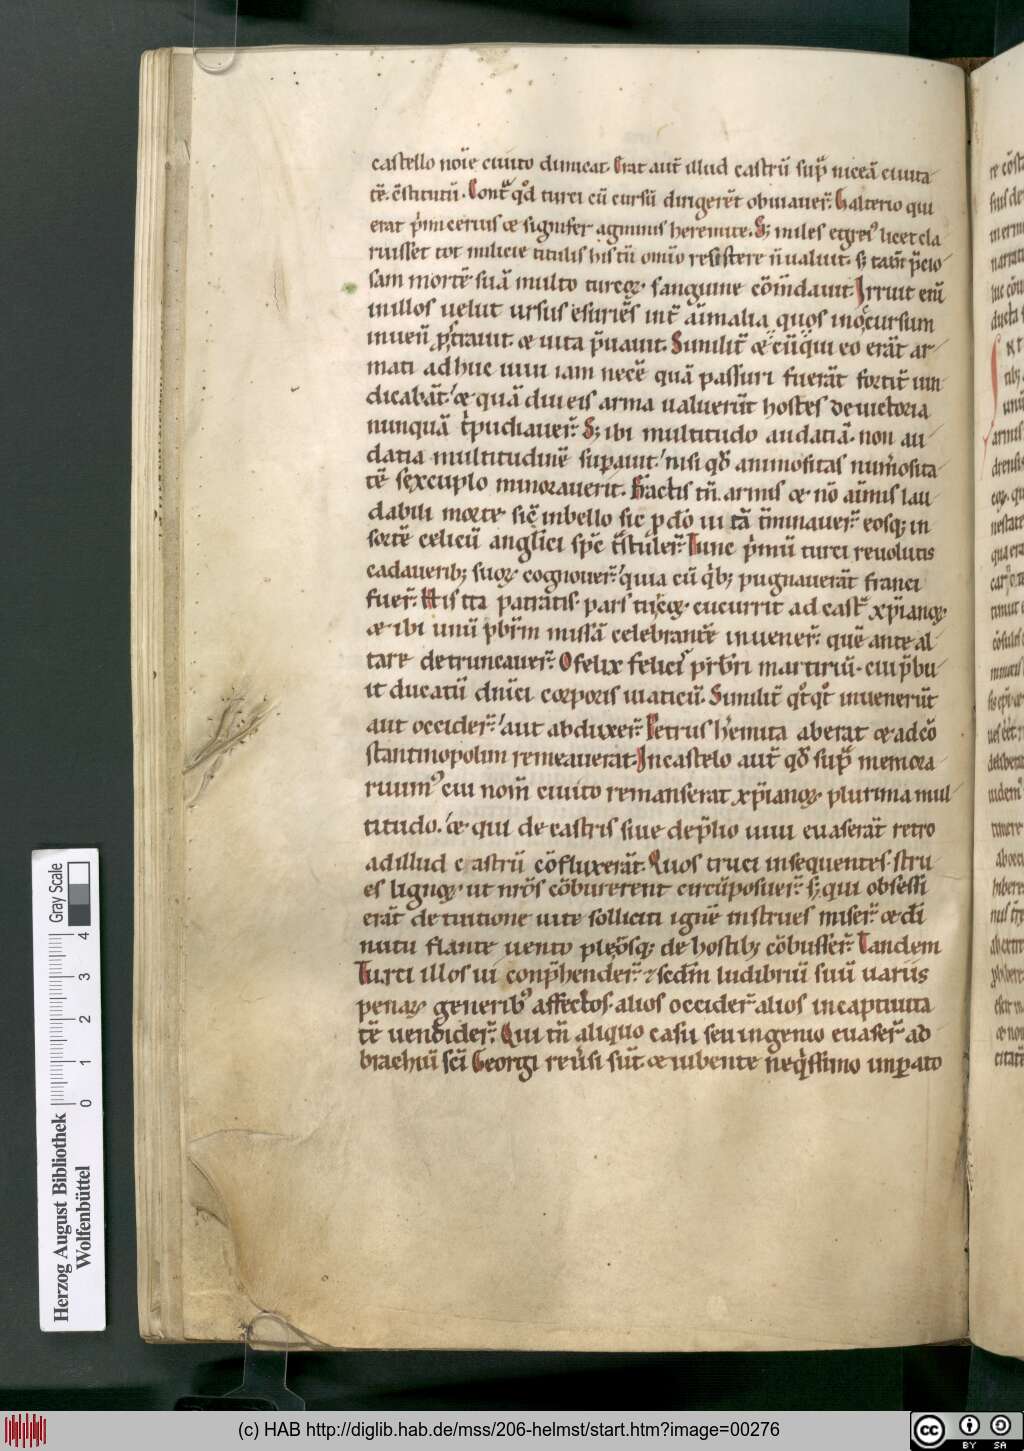 castello noīe ciuito dimicat. Erat aut̄ illud castrū sup̄ niceā ciuita
tē. c̄stitutū. Cont̄ qd̄ turci cū cursū dirigerēt obuiauer̄. Galterio qui
erat p̄miceriuſ ⁊ signifer agminis heremite. Sꝫ miles egreꝰ licet cla
ruisset tot milicie titulis his tū om̄io resistere n̄ ualuit. sꝫ tam̄ p̄cio
sam mortē suā multo turcoꝝ sanguine cōm̄dauit. Irruit eni̅
in illos uelut ursus esuriēs int̄ aīmalia quos in occursum
inuen̄ ꝓstrauit. ⁊ uita p̄uauit. Similit̄ ⁊ cū qui eo erāt ar
mati adhuc uiui iam necē quā passuri fuerāt fortit̄ uin
dicabāt ⁊ quā diu eis arma ualuerūt hostes de uictoria
nunquā t̄pudiauer̄. Sꝫ ibi multitudo audatiā. non au
datia multitudinē supauit. nisi qd̄ animositas num̄osita
tē sexcuplo minorauerit. Fractis tn̄ armis ⁊ nō aīmis lau
dabili morte sic̄ in bello sic pdō uitā t̄minauer̄ eosqꝫ in
sortē celicū anglici sp̄c t̄stuler̄. Tunc p̄mū turci reuolutis
cadaueribꝫ suoꝝ cognouer̄ quia cū qͥbꝫ pugnauerāt franci
fuer̄. His ita patratis. pars turcoꝝ cucurrit ad cast̄ xp̄ianoꝝ.
⁊ ibi unū p̄br̄m missā celebrantē inuener̄. quē ante al
tare detruncauer̄. O felix felicis p̄rbr̄i martiriū. cui p̄bu
it ducatū dn̄ici corporis uiaticū. Similit̄ qͦtqͦt inuenerūt
aut occider̄. aut abduxer̄. Petrus h̄emita aberat ⁊ ad cō
stantinopolim remeauerat. In castelo aut̄ qd̄ sup̄ memora
ruimꝰ cui nom̄ ciuito remanserat xp̄ianoꝝ plurima mul
titudo. ⁊ qui de castris siue de p̄lio uiui euaserāt retro
ad illud castrū cōfluxerāt. Quos truci insequentes. stru
es lignoꝝ ut nr̄os cōburerent circūposuer̄. sꝫ qui obsessi
erāt de tuitione uite solliciti ignē in strues miser̄ ⁊ di̅
nutu flante uento pleosqꝫ de hostibꝫ cōbusser̄. Tandem
Turci illos ui conp̄hender̄ ⁊ sedm̄ ludibriū suū uariis
penaꝝ generibꝰ affectos. alios occider̄ alios in captiuita
tē uendider̄. Qui tn̄ aliquo casu seu ingenio euaser̄ ad
brachiū sc̄i Georgi reu̅si sūt ⁊ iubente neqͥssimo imꝑato
Herzog August Bibliothek
Wolfenbüttel
0 1 2 3 4
Gray Scale
(c) HAB http://diglib.hab.de/mss/206-helmst/start.htm?image=00276
cc BY SA